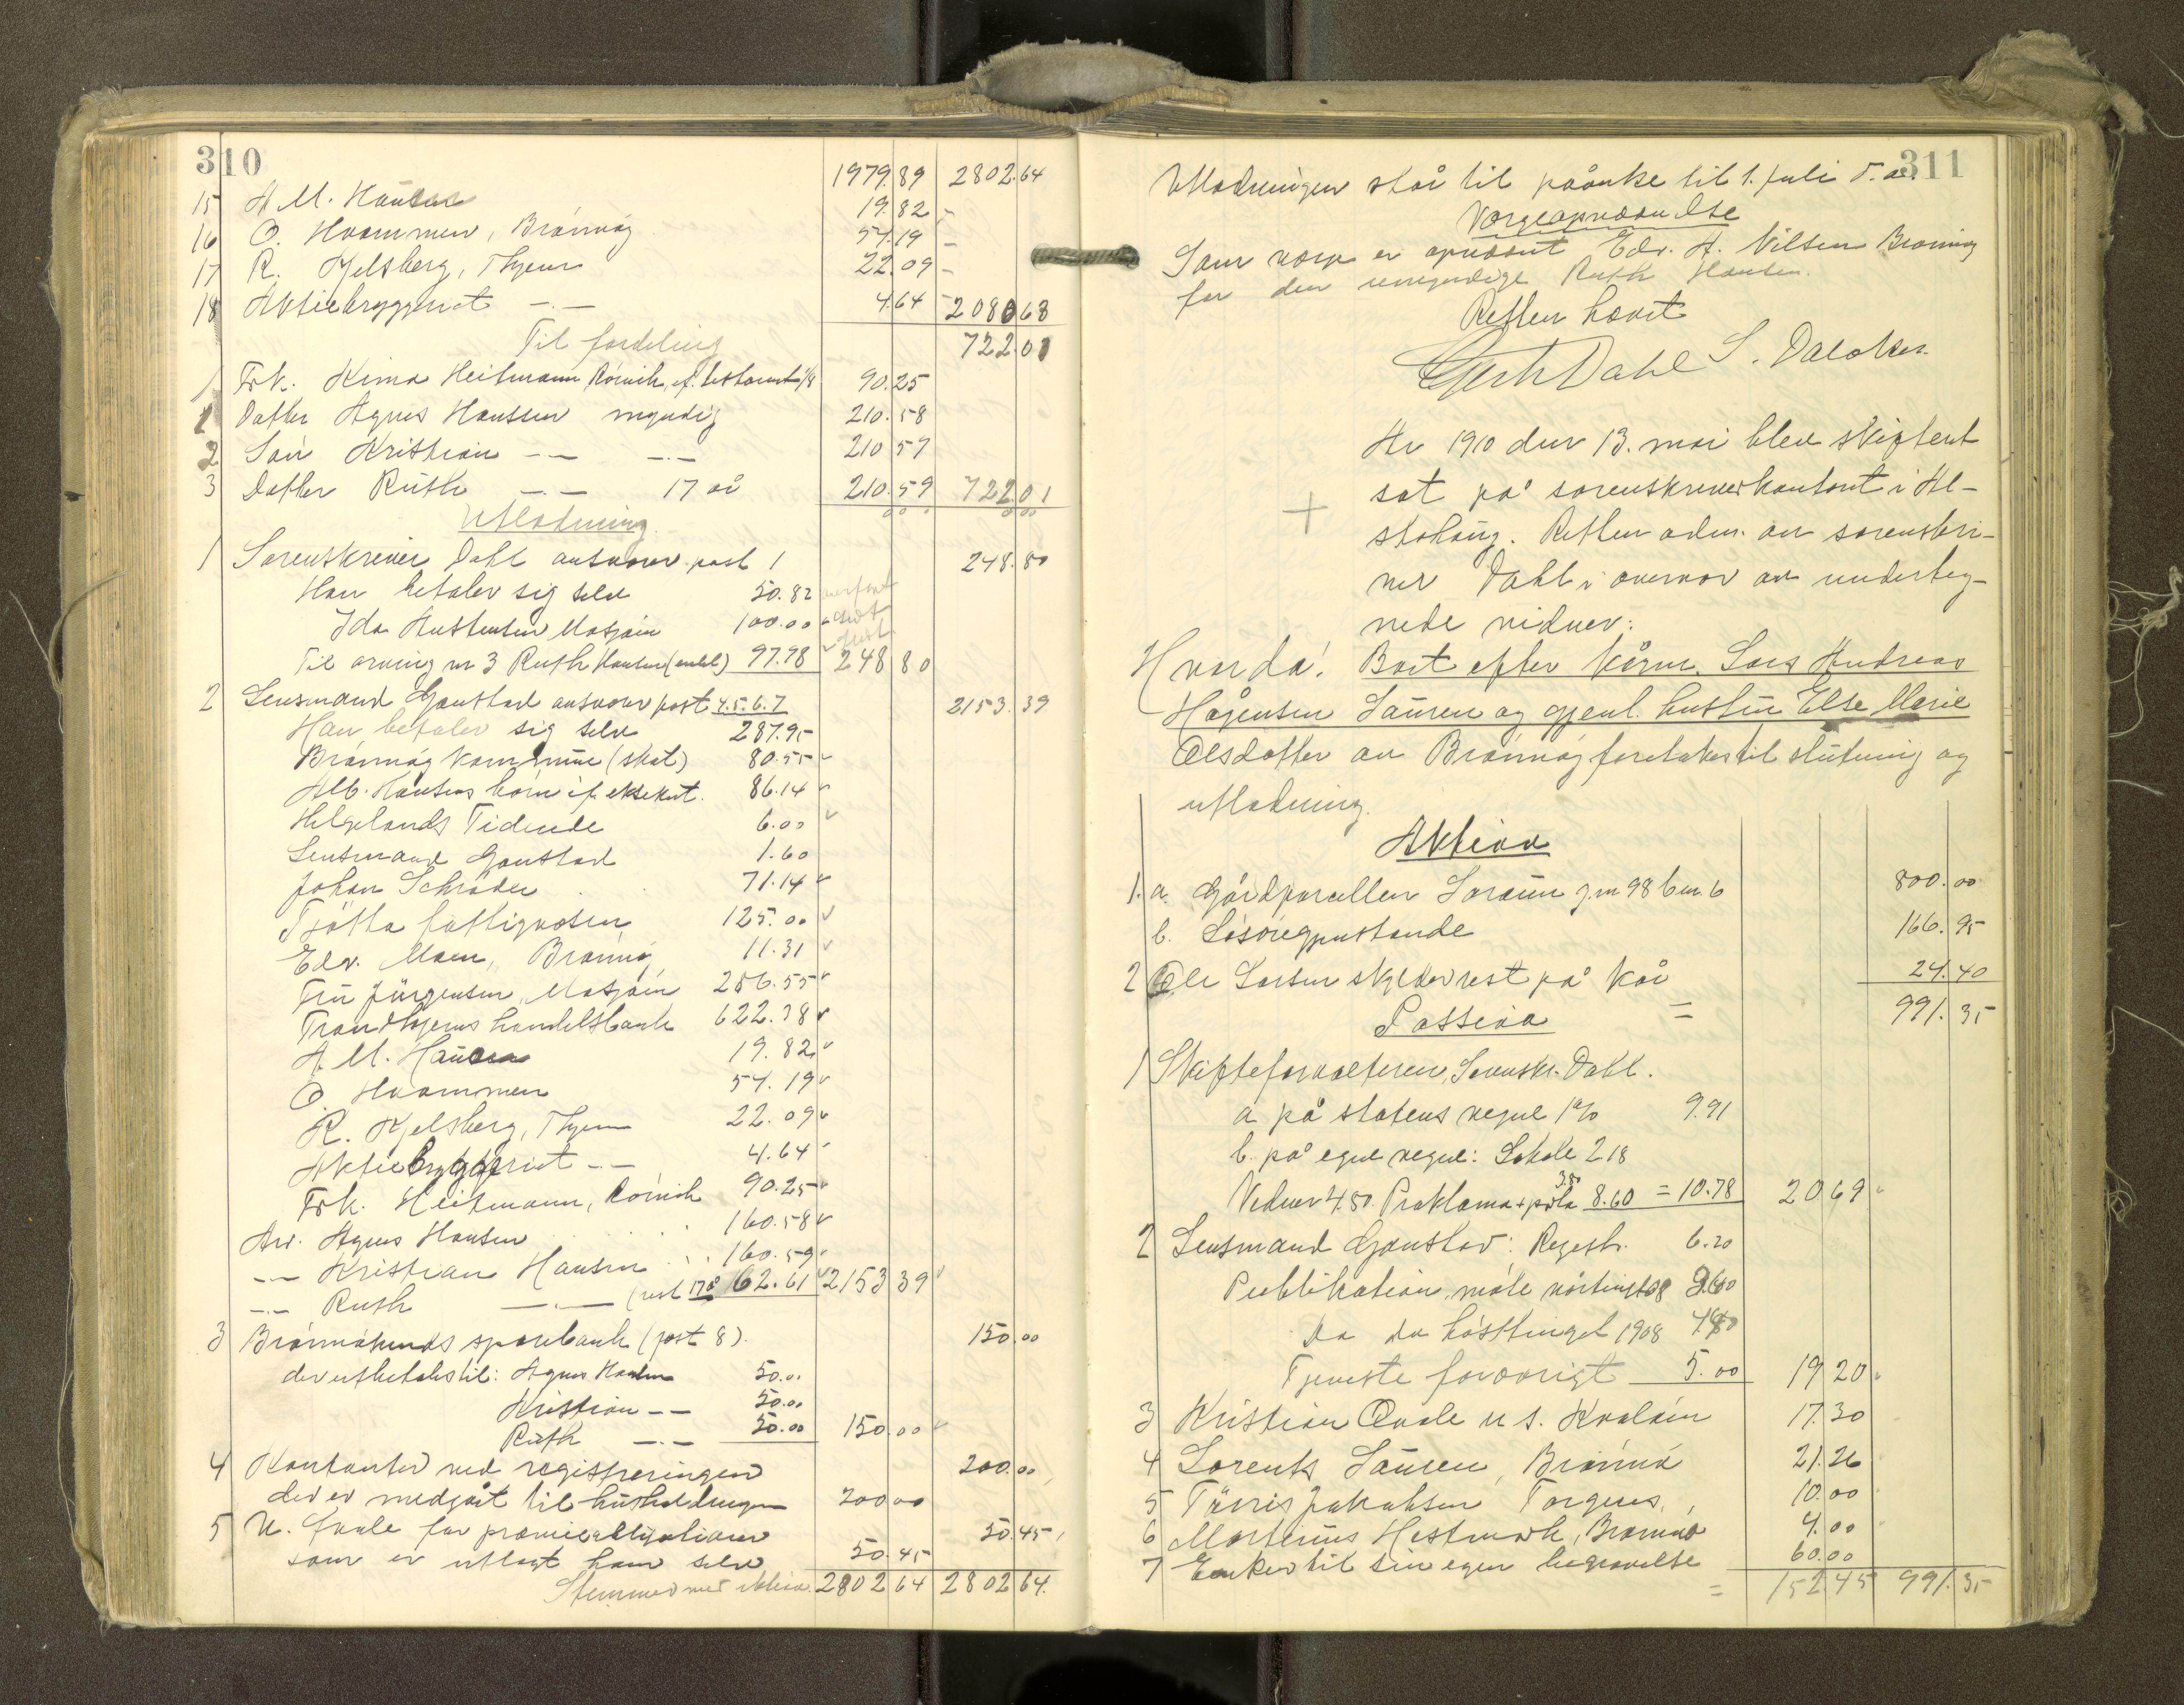 310
1979.89 2802.64
15 A M. Hansen 19.82 -
16 O. Hvammen, Brønnøy 54.19 -
17 R. Kjelsberg, Thjem 22.09 -
18 Aktiebryggeriet -.- 4.64 2080 63
Til fordeling 722.01
1 Frk. Heitmann Rørvik, ef. testament 1/8 90.25
1 Datter Agnes Hansen myndig 210.58
2 Søn Kristian -.- -.- 210 59
3 Datter Ruth -.- 17 år 210.59 722 01
Utlodning
1 Sorenskriver Dahl ansvarer post 1 248.80
Han betaler sig selv 50.82
Ida Austensen Mosjøen 100.00
Til arving nr 3 Ruth Hansen 97.98 248 80
2 Lensmand Gaustad ansvarer post 4.5.6.7 2153.39
Han betaler sig selv 287.95
Brønnøy kommune (skat) 80.55
Alb. Hansens børn if. eksekut. 86.14
Helgelands Tidende 6.00
Lensmand Gaustad 1.60
Johan Schrøder 71.14
Tjøtta fattigvæsen 125.00
Edv. Moen, Brønnøy 11.31
Fru Jürgensen, Mosjøen 256.55
Trondhjems handelsbank 622.38
A. M. Hansen 19.82
O. Hvammen 54.19
R. Kjelsberg, Thjem 22.09
Aktiebryggeriet -.- 4.64
Frk. Heitmann, Rørvik 90.25
Arv. Agnes Hansen 160.58
-.- Kristian Hansen 160.59
-.- Ruth -.- 62.61 2153 39
3 Brønnøsunds sparebank (post 8). 150.00
der utbetales til: Agnes Hansen 50.00
Kristian -.- 50.00
Ruth -.- 50.00 150.00
4 Kontanter ved registreringen 200.00
der er medgåt til husholdningen 200 00
5 U. Qvale for præmieobligationer 50.45
som er utlagt ham selv 50.45
Stemmer med aktiva. 2802 64 2802 64.
311
Utlodningen står til påanke til 1. juli d. a.
Vergeopnævnelse
Som verge er opnævnt Edv. A. Nilsen Brønnøy
for den umyndige Ruth Hansen.
Retten hævet
Gerh Dahl S. Dalaker
År 1910 den 13. mai blev skifteret
sat på sorenskriverkontoret i Al-
stahaug. Retten adm. av sorenskri-
ver Dahl i overvær av underteg-
nede vidner:
Hvorda! Boet efter kårm. Lars Andreas
Hågensen Sauren og gjenl. hustru Else Marie
Olsdatter av Brønnøy foretakes til slutning og
utlodning.
Aktiva
1. a. Gårdparcellen Soraun g.nr 98 b.nr. 6 800.00
b. Løsøregjenstande 166.95
2 Ole Larsen skylder rest på kår 24.40
= 991.35
Passiva
1 Skifteforvalteren, Sorenskr. Dahl.
a på statens vegne 1% 9.91
b. på egne vegne: Lokale 2.18
3.80
Vidner 4.50. Proklama + porto 8.60 = 10.78 20 69
2 Lensmand Gaustad: Registr. 6.20
Publikation, møte vårtinget 08 3.60
Do do høsttinget 1908 4.40
Tjeneste forøvrigt 5.00 19 20
3 Kristian Qvale u s. Kvaløen 17.30
4 Lorents Sauren, Brønnø 21.26
5 Tørris Jakobsen Torgnes, 10.00
6 Morterius Hestmark, Brønnø 4.00
7 Enken til sin egen begravelse 60.00
= 152 45 991.35